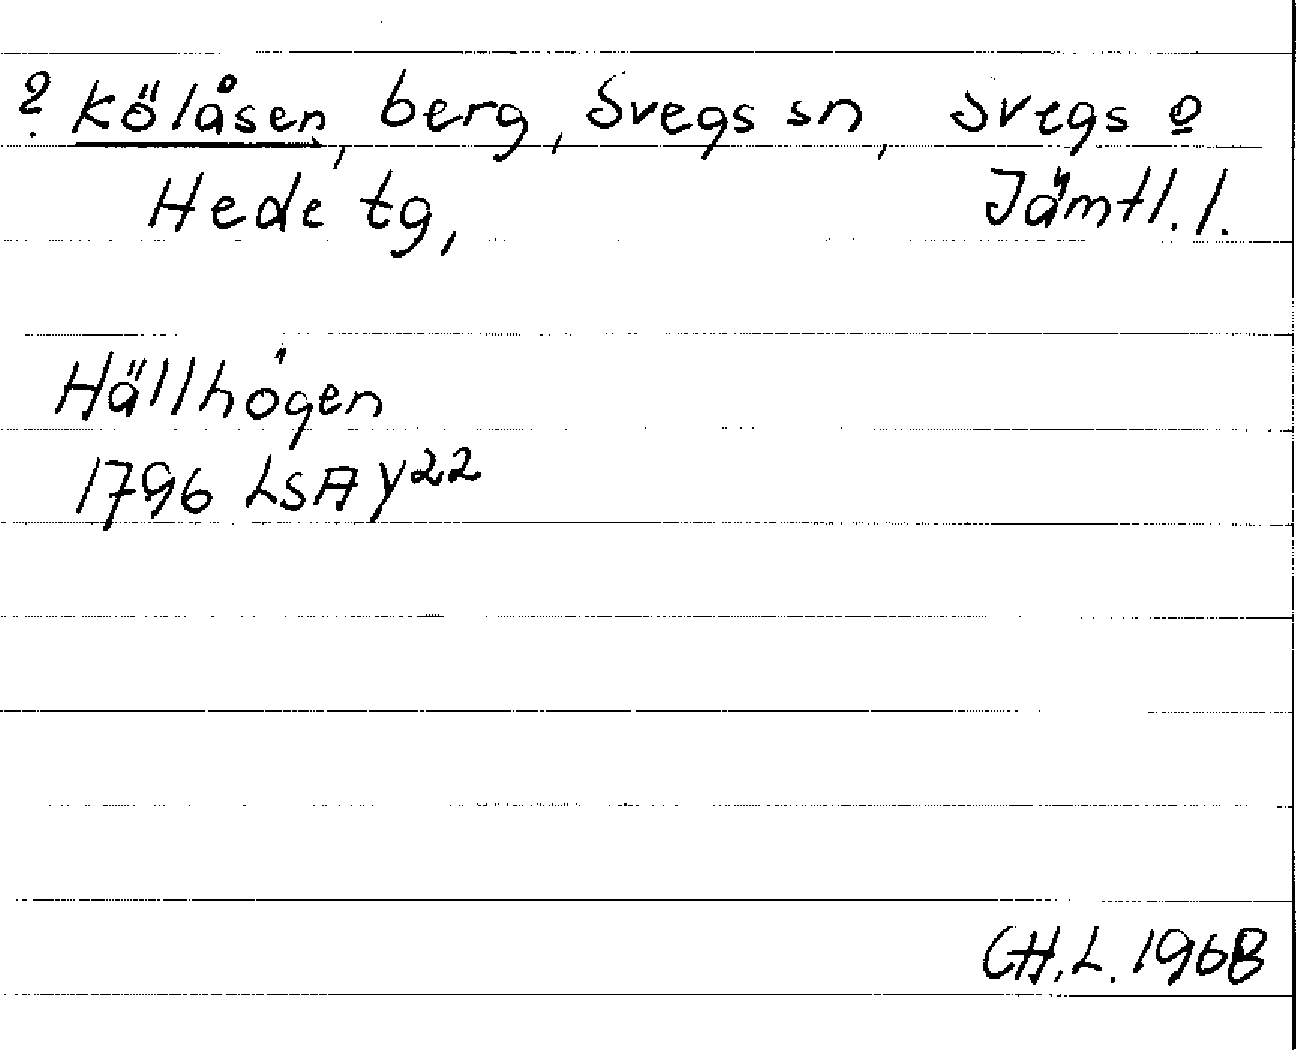 ? Kölåsen, berg, Svegs sn, Svegs o
Hede tg, Jämtl. l.
Hällhögen
1796 LSA Y22
CH.L. 1968